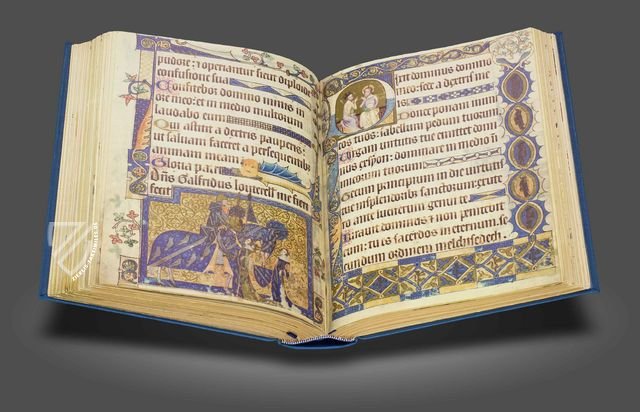 pudore: et operiantur sicut diploide
confusione sua
Confitebor domino nimis in
ore meo: et in medio multorum
laudabo eum
Qui astitit a dextris pauperis:
ut salvam faceret a persequentib
animam meam
Gloria patri
Dns Galfridus louterell me fieri
fecit
Dixit dominus domino
meo: sede a dextris me
Donec ponam inimi
cos tuos: scabellum pedum tuorum
Virgam virtutis tue emittet domi
nus ex syon: dominare in medio i
nimicorum tuorum
Tecum principium in die virtutis
tue in splendoribus sanctorum: ex ute
ro ante luciferum genui te
Iuravit dominus et non penitebit
eum: tu es sacerdos in eternum se
cundum ordinem melchisedech